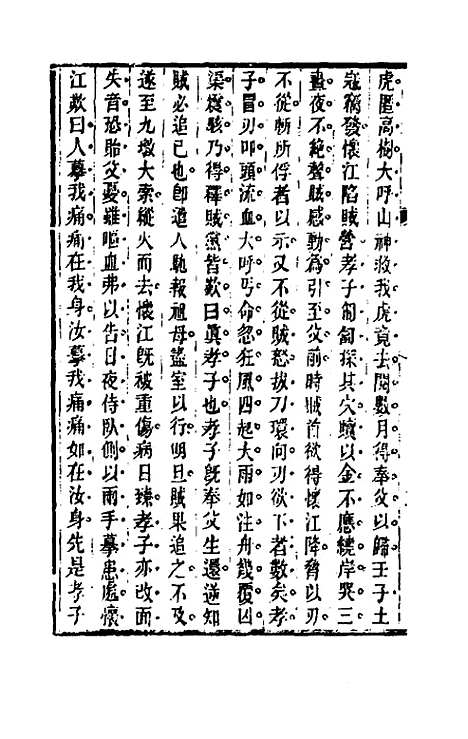 虎匿高樹大呼山神救我虎竟去閱數月得奉父以歸壬子土
寇竊發懷江陷賊營孝子匍匐探其穴贖以金不應繞岸哭三
晝夜不絕聲賊感動為引至父前時賊首欲得懷江降脅以刃
不從斬所俘者以示又不從賊怒拔刀環向刃欲下者數矣孝
子冒刃叩頭流血大呼丐命忽狂風四起大雨如注舟幾覆凶
渠震駭乃得釋賊黨皆歎曰真孝子也孝子旣奉父生還逆知
賊必追已也卽遣人馳報祖母盡室以行明旦賊果追之不及
遂至九墩大索縱火而去懷江旣被重傷病日臻孝子亦改面
失音恐貽父憂雖嘔血弗以告日夜侍臥側以兩手摹患處懷
江歎曰人摹我痛痛在我身汝摹我痛痛如在汝身先是孝子